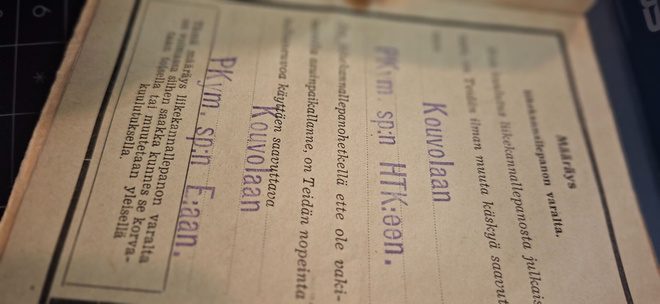 Määräys
liikekannallepanon varalta.
liikekannallepanosta julkais
Teidän ilman muuta käskyä saavut
Kouvolaan
PKym. sp:n HTK:een.
liikekannallepanohetkellä ette ole vaki-
asuinpaikallanne, on Teidän nopeinta
käyttäen saavuttava
Kouvolaan
PKym. sp:n E:aan.
Tämä määräys liikekannallepanon varalta
on voimassa siihen saakka kunnes se korva-
taan toisella tai muutetaan yleisellä
kuulutuksella.